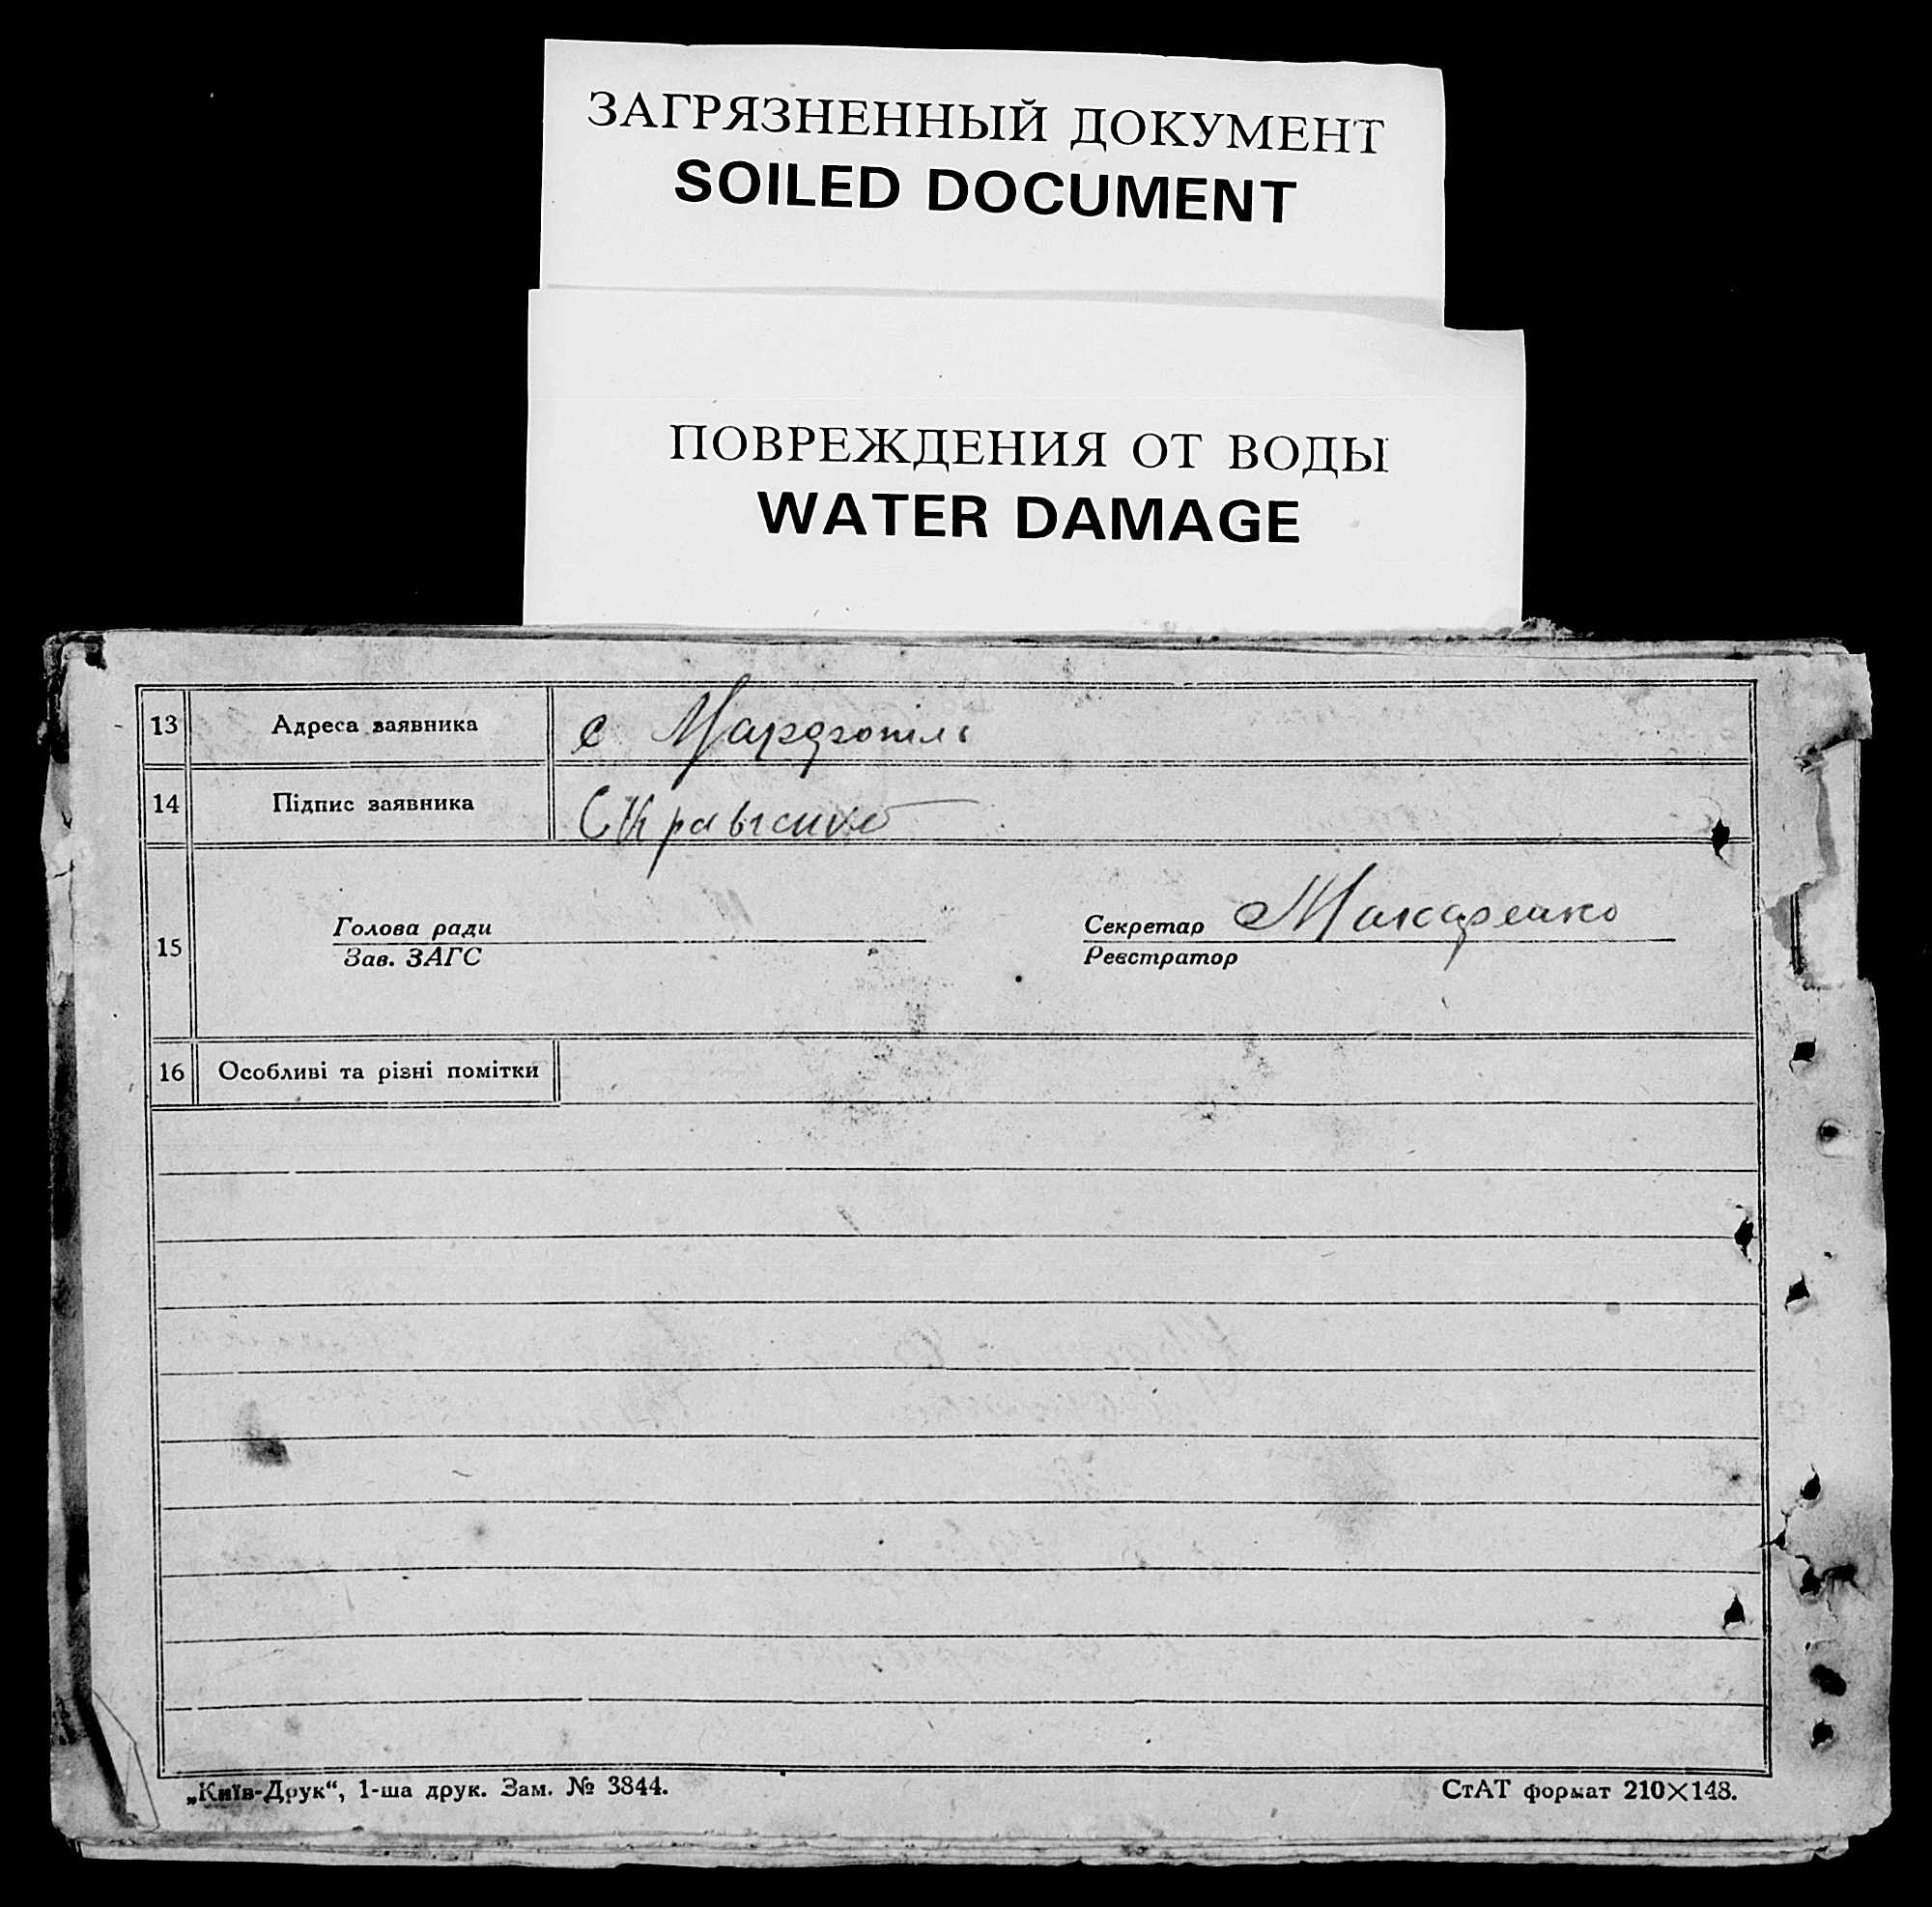 ЗАГРЯЗНЕННЫЙ ДОКУМЕНТ
SOILED DOCUMENT
ПОВРЕЖДЕНИЯ ОТ ВОДЫ
WATER DAMAGE
13 Адреса заявника с
14 Підпис заявника
Голова ради Секретар Макаренко
15
Зав. ЗАГС Реєстратор
16 Особливі та різні помітки
„Київ-Друк“, 1-ша друк. Зам. № 3844. СтАТ формат 210×148.